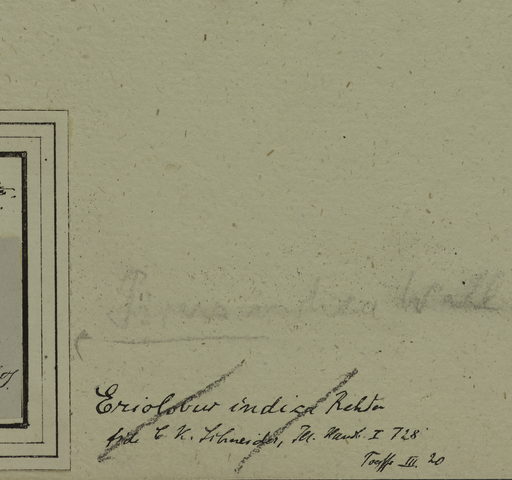 Pyrus indica Wall
Eriolobus indica
fide C. K. Schneider, Ill. Handb. I 728
III. 20